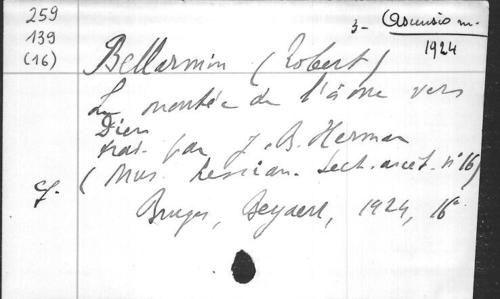 259
139
(16)
3- Ascensio m.
1924
Bellarmin (Robert)
La montée de l'âme vers
Dieu
trad. par J. B. Herman
(Mus. Lessian. Sect. ascet. n° 16)
Bruges, Beyaert, 1924, 16°